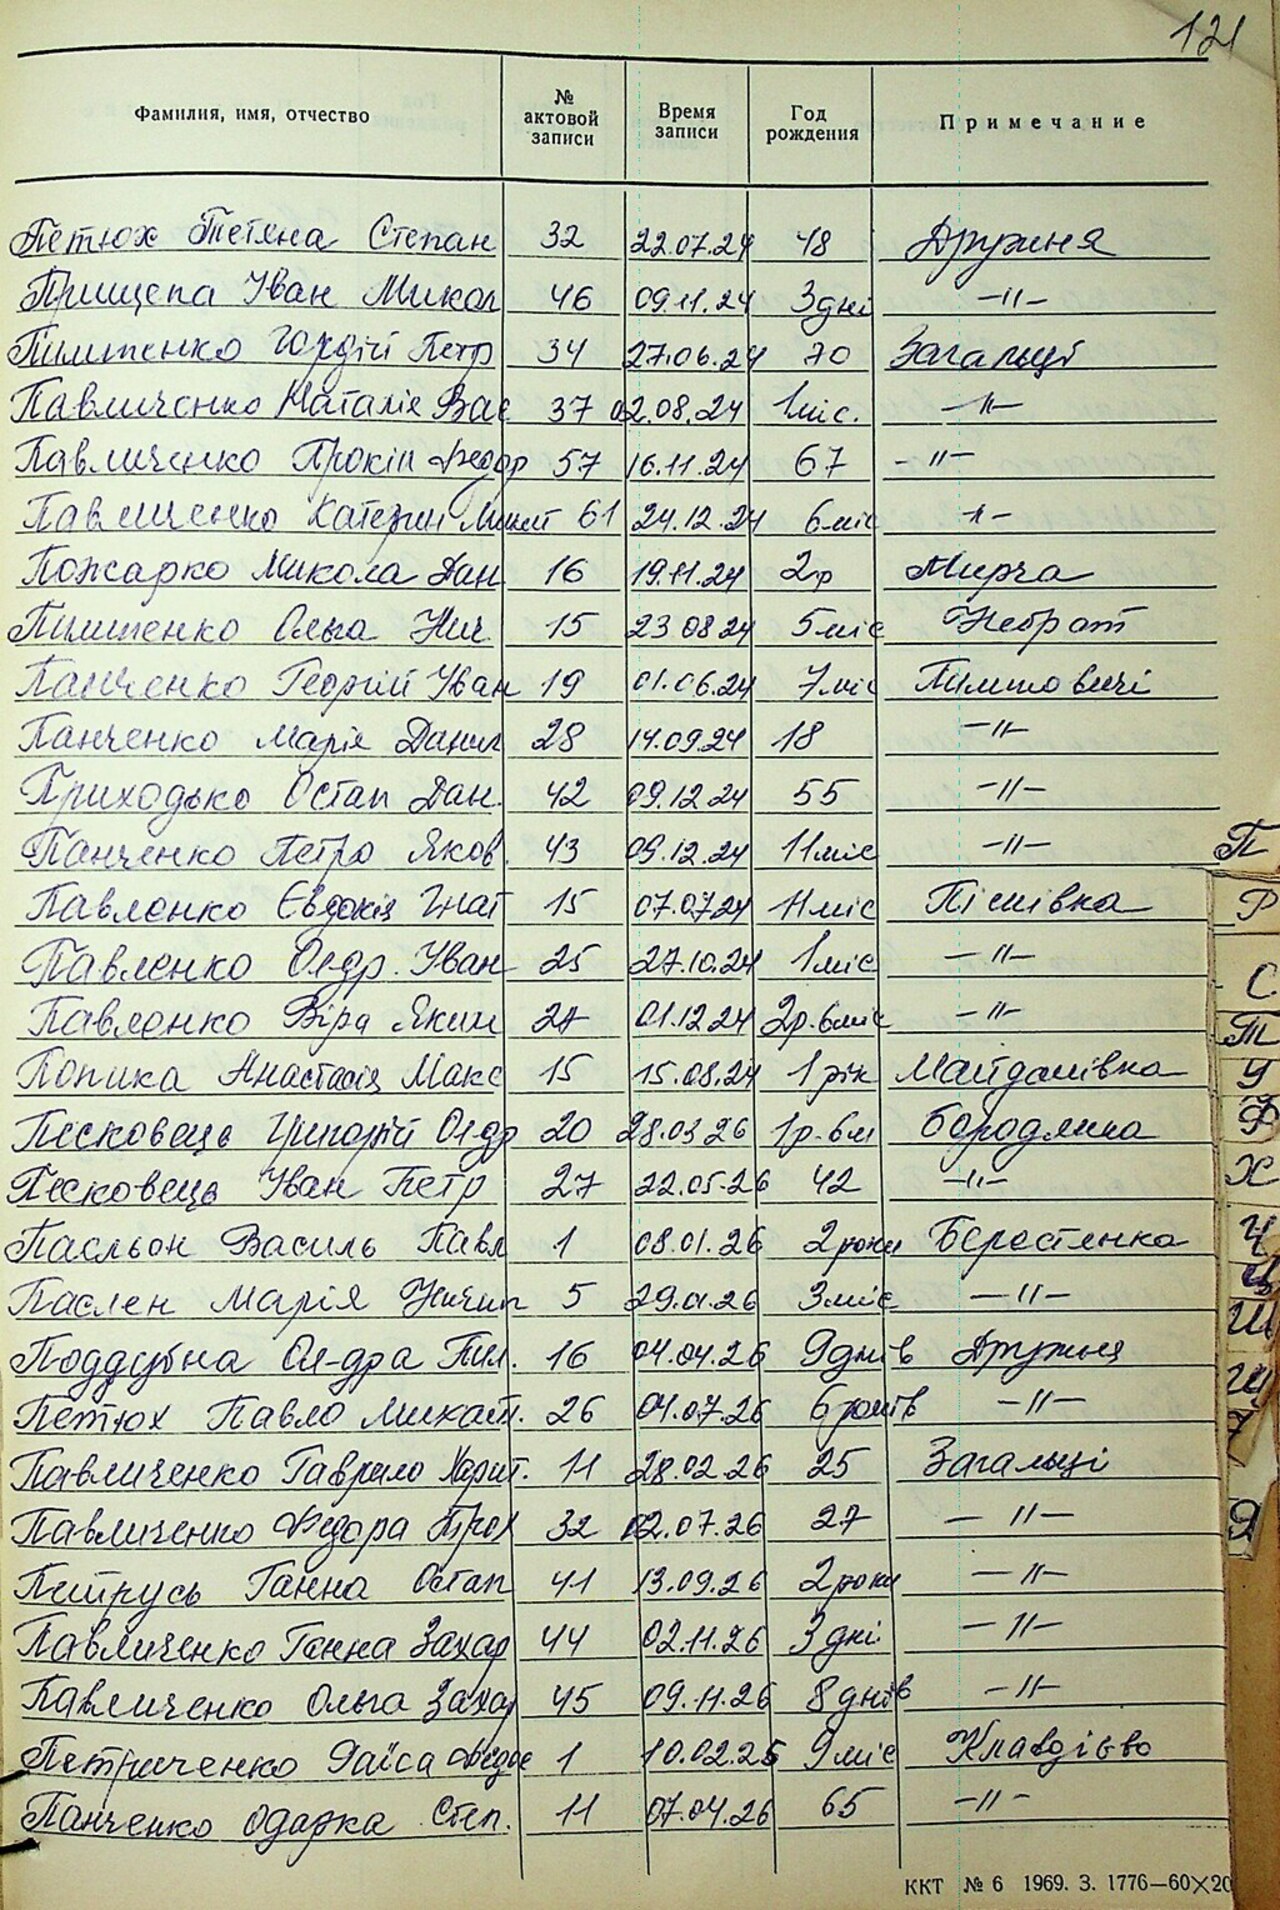 121
Фамилия, имя, отчество № актовой записи Время записи Год рождения Примечание
Петюх Тетяна Степан 32 22.07.24 48 Дружня
Прищепа Іван Микол 46 09.11.24 3 дні —"—
Пилипенко Гордій Петр 34 27.06.24 70 Загальці
Павличенко Наталія Вас 37 02.08.24 1 міс. —"—
Павличенко Прокіп Федор 57 16.11.24 67 —"—
Павличенко Катерин 61 24.12.24 6 міс —"—
Пожарко Микола Дан 16 19.11.24 2 р Мирча
Пилипенко Ольга Нич 15 23 08 24 5 міс Небрат
Панченко Георгій Іван 19 01.06.24 7 міс Пилиповичі
Панченко Марія Данил 28 14.09.24 18 —"—
Приходько Остап Дан. 42 09.12.24 55 —"—
Панченко Петро Яков. 43 09.12.24 11 міс —"—
П
Павленко Євдокія Гнат 15 07.07.24 11 міс Пісківка
Р
Павленко Ол-др. Іван 25 27.10.24 1 міс —"—
С
Павленко Віра Яким 27 01.12.24 2 р. 6 міс —"—
Т
Попика Анастасія Макс 15 15.08.24 1 рік Майданівка
У
Песковець Григорій Ол-др 20 28.03 26 1 р. 6 м Бородянка
Ф
Песковець Іван Петр 27 22.05.26 42 —"—
Х
Пасльон Василь Павл 1 08.01.26 2 роки Берестянка
Ч
Паслен Марія Ничип 5 29.01.26 3 міс —"—
Ц
Ш
Поддубна Ол-дра Пил. 16 04.04.26 9 днів Дружня
Щ
Петюх Павло 26 04.07.26 6 років —"—
Павличенко Гаврило Харит. 11 28.02.26 25 Загальці
Павличенко Федора Прох 32 02.07.26 27 —"—
Я
Петрусь Ганна Остап 41 13.09.26 2 роки —"—
Павличенко Ганна Захар 44 02.11.26 3 дні —"—
Павличенко Ольга Захар 45 09.11.26 8 днів —"—
Петриченко Раїса Федос 1 10.02.26 9 міс Клавдієво
Панченко Одарка Степ. 11 07.04.26 65 —"—
ККТ № 6 1969. З. 1776—60×20